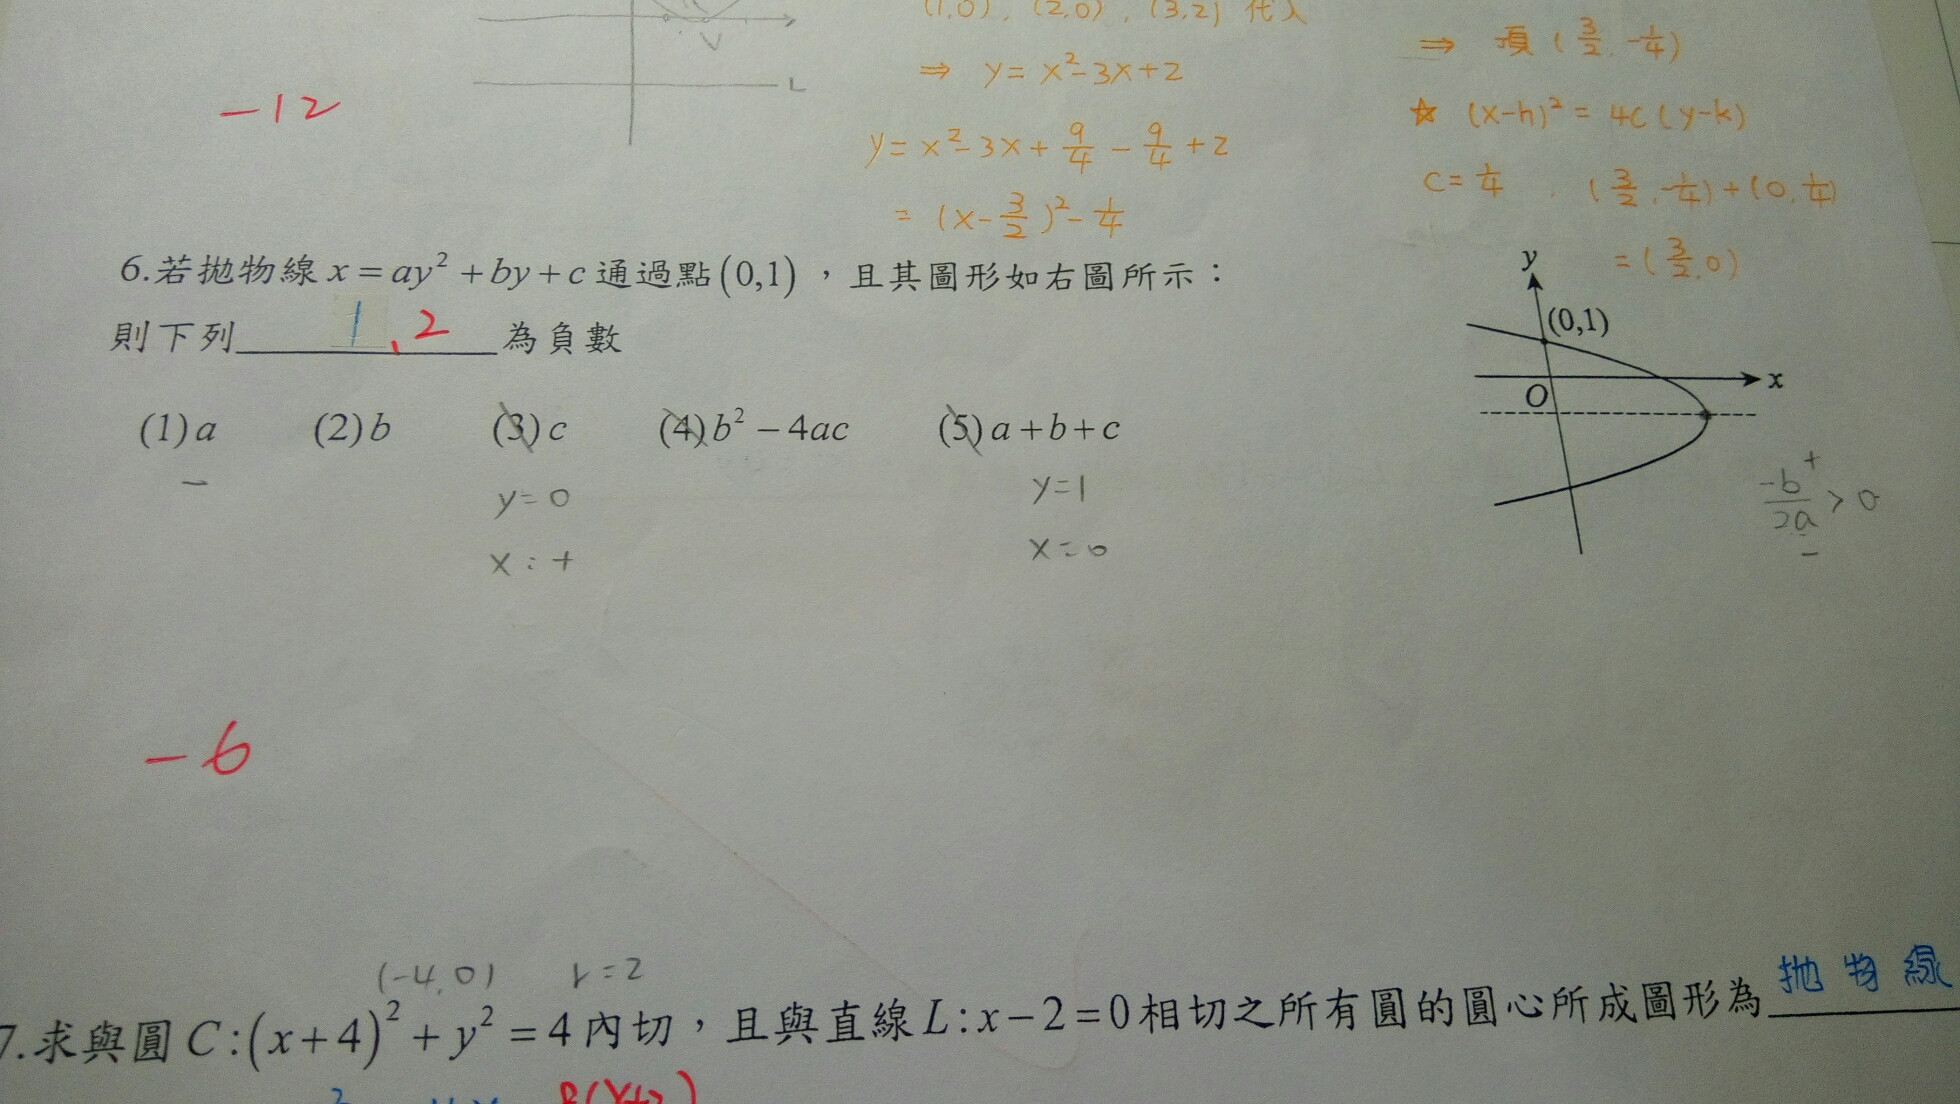 (1,0), (2,0), (3,2) 代入
⇒ y = x²-3x+2
y = x²-3x+9/4-9/4+2
= (x-3/2)²-1/4
⇒ 頂(3/2,-1/4)
☆ (x-h)² = 4c(y-k)
c=1/4, (3/2,-1/4)+(0,1/4)
=(3/2,0)
V
L
-12
6.若拋物線 x = ay² + by + c 通過點(0,1),且其圖形如右圖所示:
則下列 1、2 為負數
(1) a (2) b (3) c (4) b² − 4ac (5) a + b + c
−
y=0
x:+
y=1
x=0
y
(0,1)
x
O
-b+
/2a > 0
−
-6
(-4,0) r=2
7.求與圓 C:(x+4)² + y² = 4 內切,且與直線 L: x − 2 = 0 相切之所有圓的圓心所成圖形為 拋物線